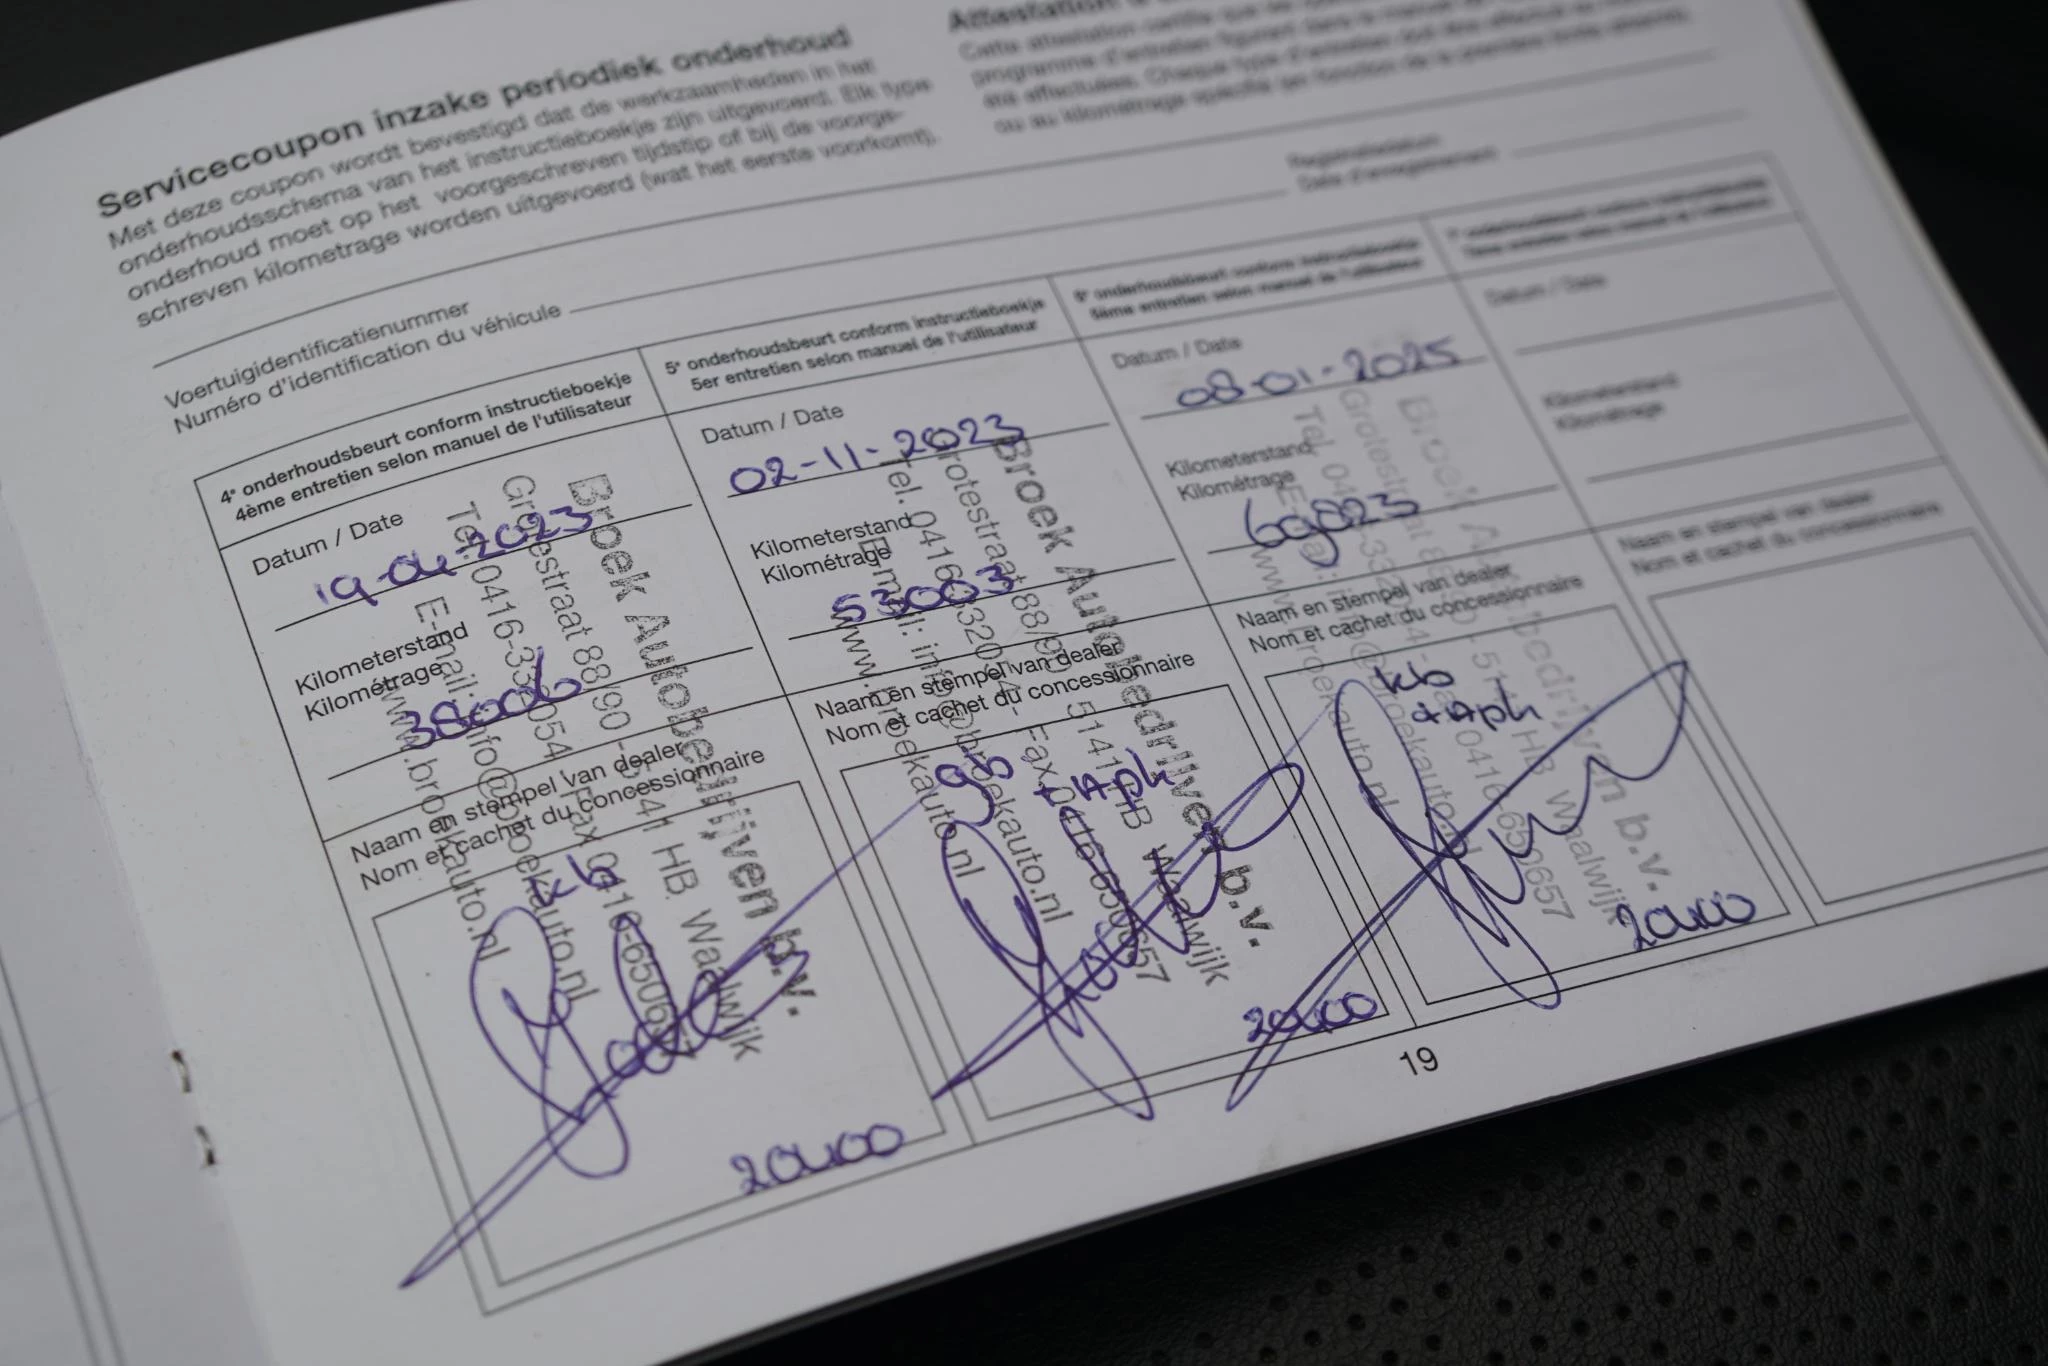 Servicecoupon inzake periodiek onderhoud
Met deze coupon wordt bevestigd dat de werkzaamheden in het
onderhoudsschema van het instructieboekje zijn uitgevoerd. Elk type
onderhoud moet op het voorgeschreven tijdstip of bij de voorge-
schreven kilometrage worden uitgevoerd (wat het eerste voorkomt).
Attestation
Cette attestation certifie que
programme d'entretien figurant dans le manuel
été effectuées. Chaque type d'entretien doit être effectué au
ou au kilométrage spécifié (en fonction de la première limite atteinte).
Voertuigidentificatienummer
Numéro d'identification du véhicule
Registratiedatum
Date d'enregistrement
4e onderhoudsbeurt conform instructieboekje
4ème entretien selon manuel de l'utilisateur
Datum / Date
19-04-2023
Kilometerstand
Kilométrage
38006
Naam en stempel van dealer
Nom et cachet du concessionnaire
kb
20400
Broek Autobedrijven b.v.
Grotestraat 88/90 - 5141 HB Waalwijk
Tel. 0416-332054 - Fax 0416-650657
E-mail: info@broekauto.nl
www.broekauto.nl
5e onderhoudsbeurt conform instructieboekje
5er entretien selon manuel de l'utilisateur
Datum / Date
02-11-2023
Kilometerstand
Kilométrage
53003
Naam en stempel van dealer
Nom et cachet du concessionnaire
gb
+ APK
20400
Broek Autobedrijven b.v.
Grotestraat 88/90 - 5141 HB Waalwijk
Tel. 0416-332054 - Fax 0416-650657
E-mail: info@broekauto.nl
www.broekauto.nl
6e onderhoudsbeurt conform instructieboekje
6ème entretien selon manuel de l'utilisateur
Datum / Date
08-01-2025
Kilometerstand
Kilométrage
69823
Naam en stempel van dealer
Nom et cachet du concessionnaire
kb
+ APK
20400
Broek Autobedrijven b.v.
Grotestraat 88/90 - 5141 HB Waalwijk
Tel. 0416-332054 - Fax 0416-650657
E-mail: info@broekauto.nl
www.broekauto.nl
7e onderhoudsbeurt conform instructieboekje
7ème entretien selon manuel de l'utilisateur
Datum / Date
Kilometerstand
Kilométrage
Naam en stempel van dealer
Nom et cachet du concessionnaire
19